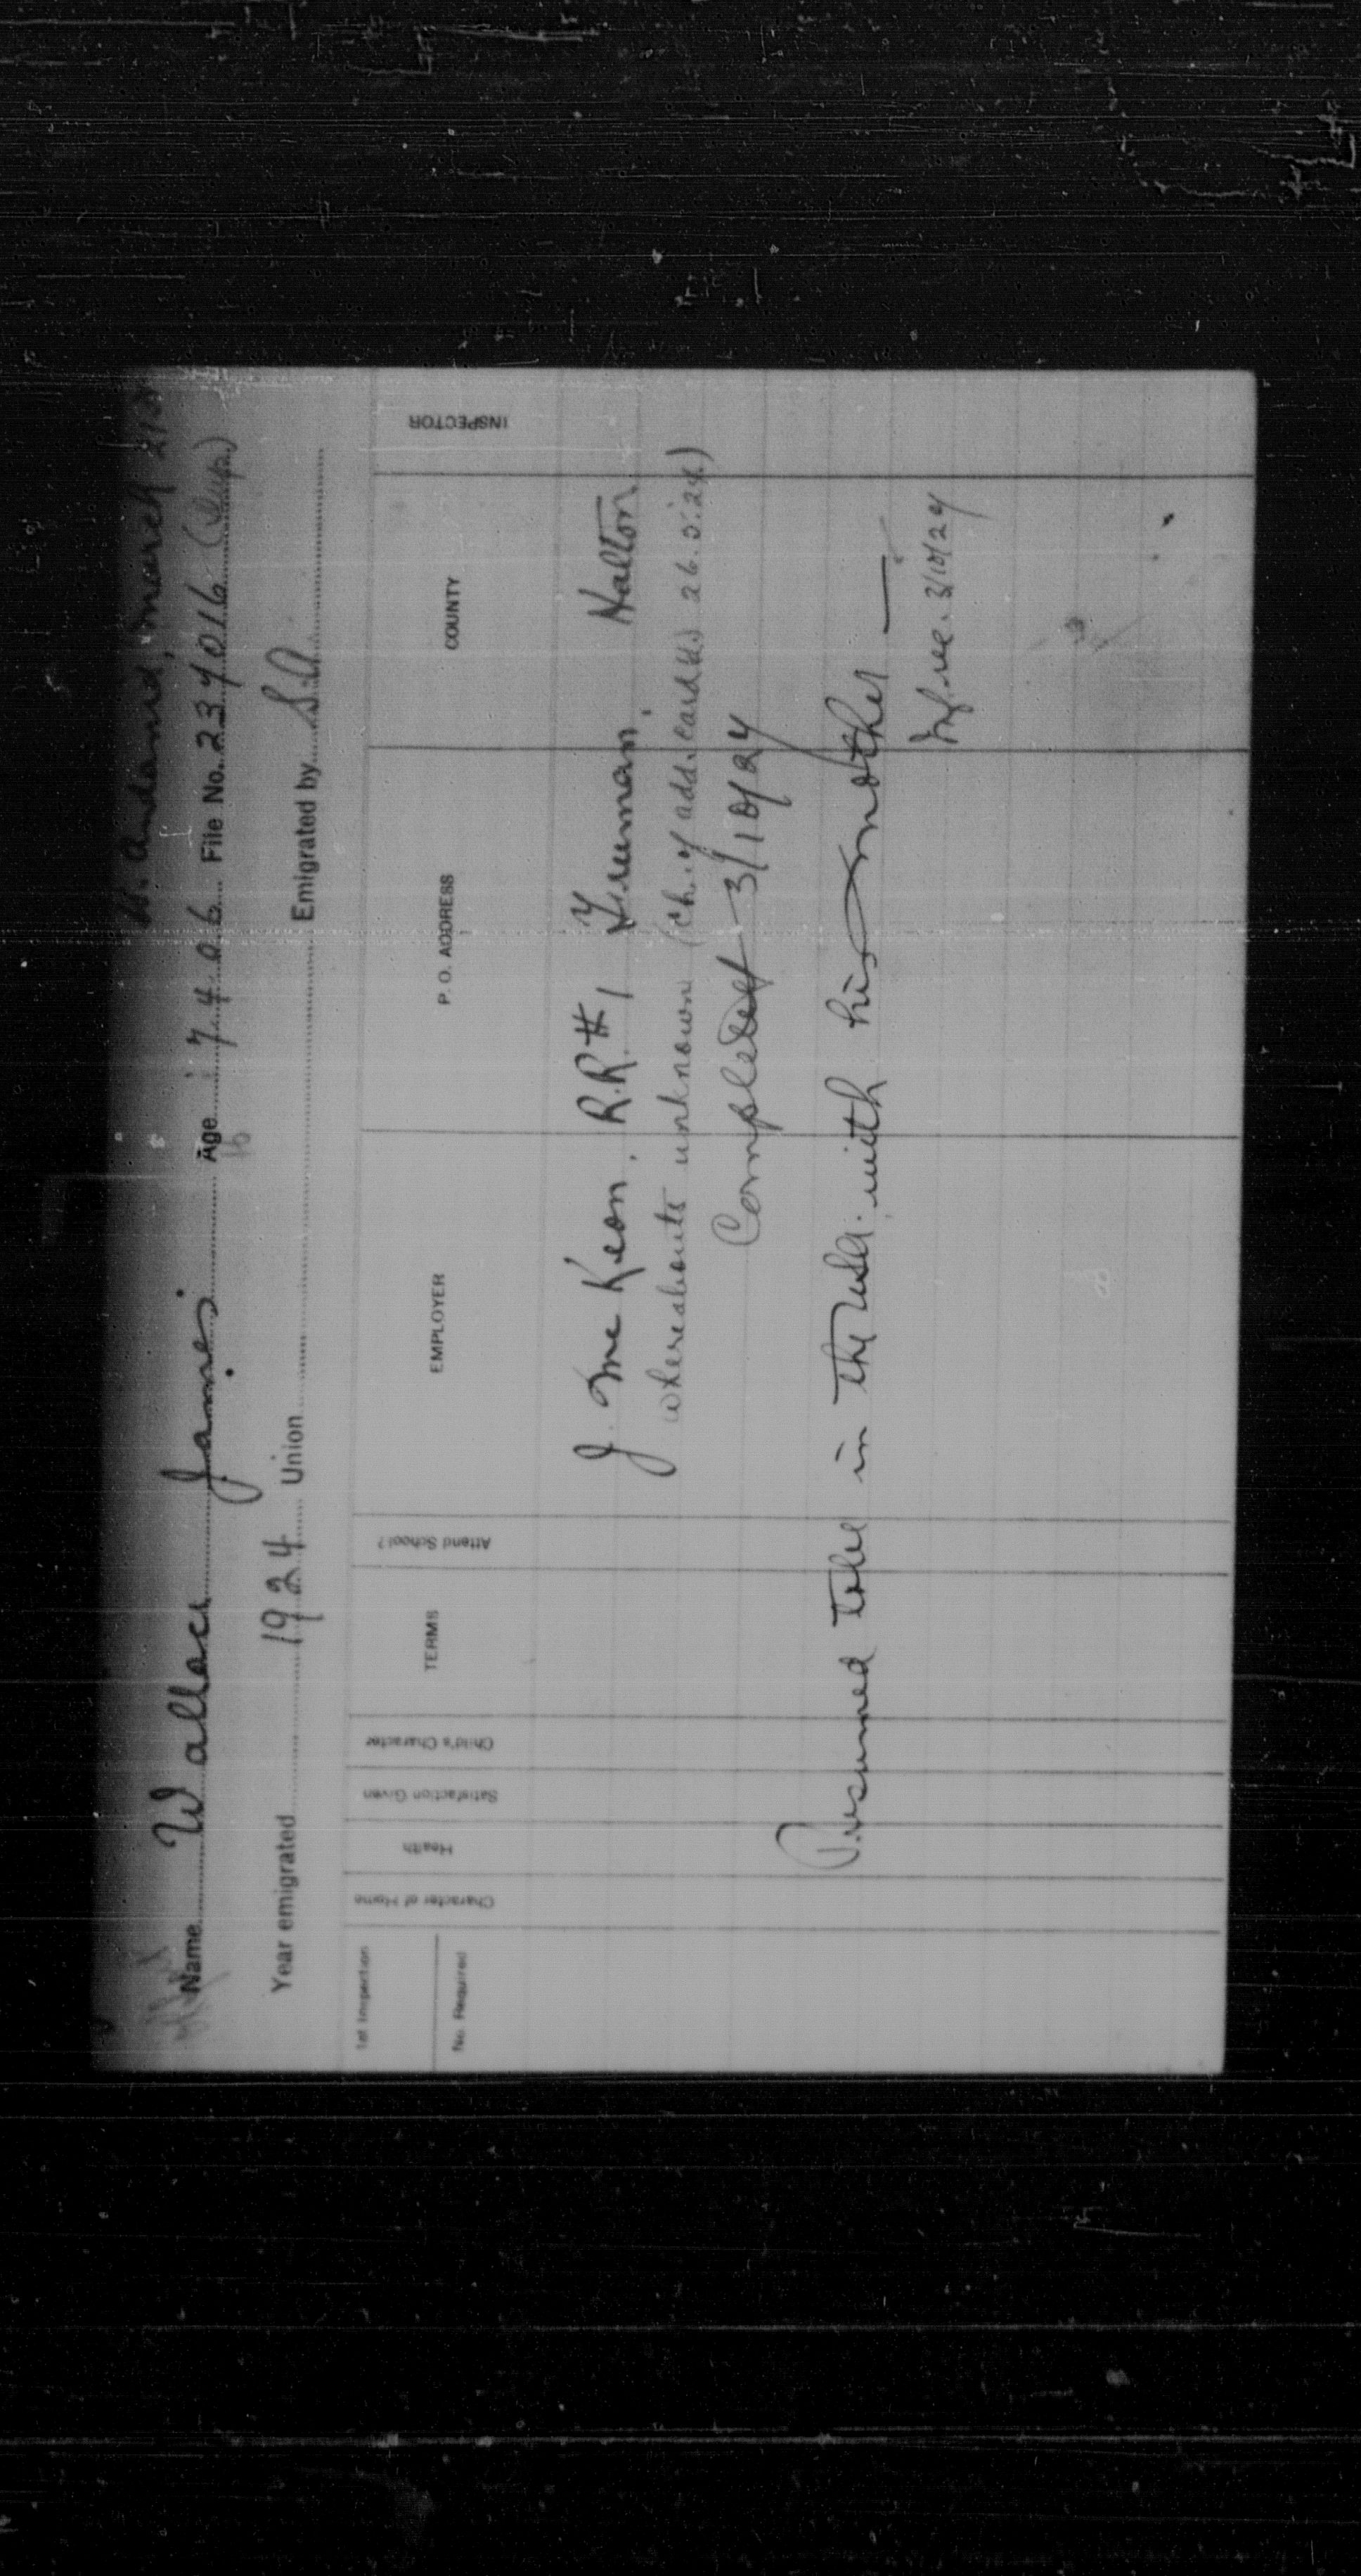 March 21
Name Wallace James Age 16 7.4.06 File No. 234016 (Sup.)
Year emigrated 1924 Union Emigrated by S.A.
1st Inspection
No. Required
Character of Home
Health
Satisfaction Given
Child's Character
TERMS
Attend School?
EMPLOYER
P. O. ADDRESS
COUNTY
INSPECTOR
J. McKeon. R.R.#1 Freeman. Halton.
whereabouts unknown (Ch. of add. card dd. 26.5.24)
Completed 3/10/24
Presumed to be in the USA. with his mother —
3/10/24